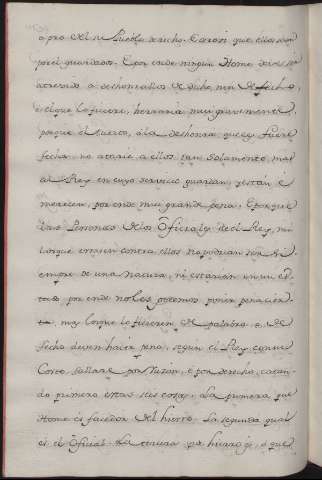 o pro del su Pueblo dicho. E otrosi que ellos sean
por el guardados. E por ende ningun Home debe ser
atrevido a deshonrallos de dicho, nin de fecho,
e el que lo ficiere, herraria muy gravemente
porque el tuerto, ó la deshonra que y fuere
fecha, no atañe a ellos tan solamente, mas
al Rey en cuyo servicio guardan, y estan é
merecen, por ende muy grande pena. E porque
las Personas de los Oficiales del Rey, ni
los que errasen contra ellos no podrian ser si-
empre de una natura, ni estarian en un es-
tado por ende no les podemos poner pena cier-
ta, mas los que lo ficieren de palabra o de
fecho deven haver pena, segun el Rey con su
Corte, fallare por razon, é por derecho, catan-
do primero estas seis cosas. La primera que
Home es facedor del hierro. La segunda qual
es el Oficial. La tercera que hierro es, o que